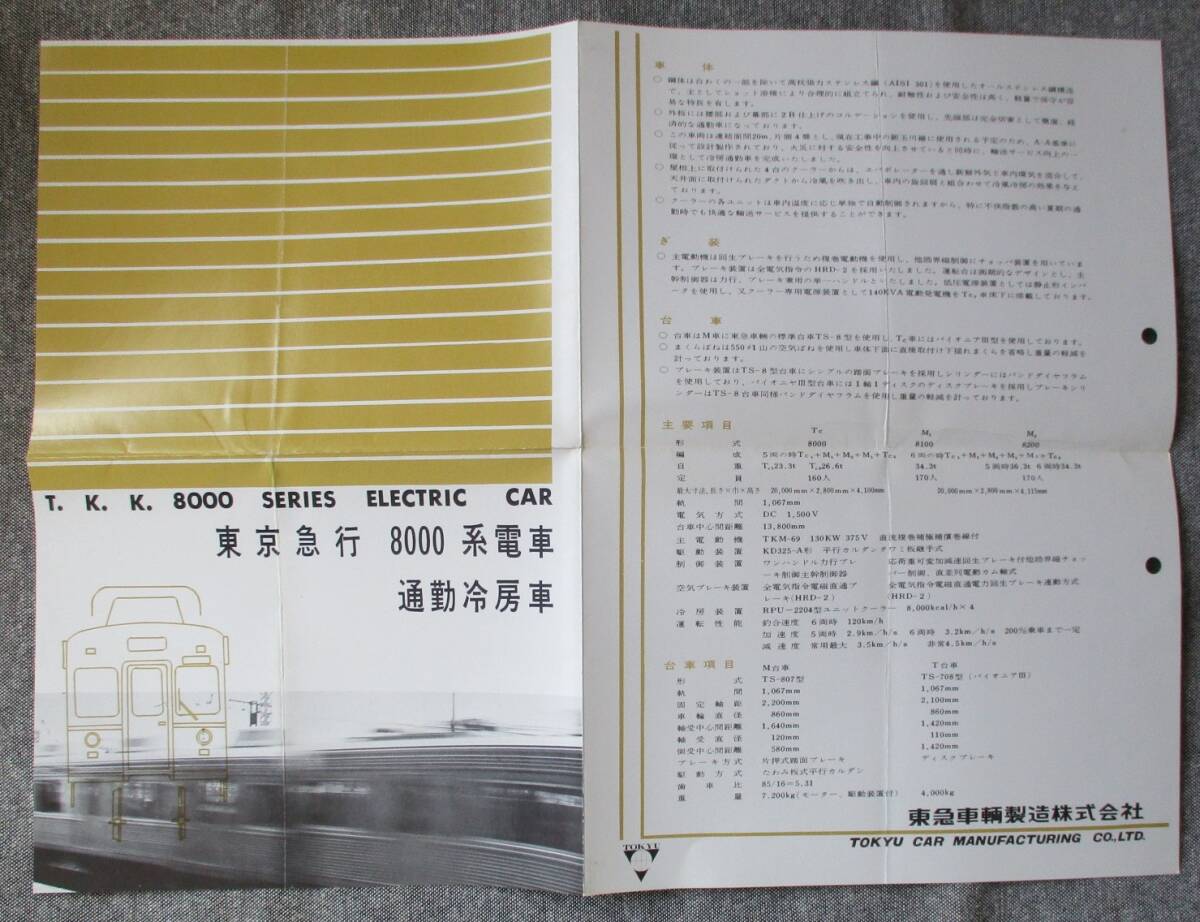 T. K. K. 8000 SERIES ELECTRIC CAR
東京急行 8000 系電車
通勤冷房車
車体
○ 鋼体は台わくの一部を除いて高抗張力ステンレス鋼(AISI 301)を使用したオールステンレス鋼構造
で、主としてショット溶接により合理的に組立てられ、耐蝕性および安全性は高く、軽量で保守が容
易な特長を有します。
○ 外板には腰部および幕部に2B仕上げのコルゲーションを使用し、先頭部は完全切妻として簡潔、経
済的な通勤車になっております。
○ この車両は連結面間20m、片側4扉とし、現在工事中の新玉川線に使用される予定のため、A-A基準に
従って設計製作されており、火災に対する安全性を向上させていると同時に、輸送サービス向上の一
環として冷房通勤車を完成いたしました。
○ 屋根上に取付けられた4台のクーラーからは、エバポレーターを通し新鮮外気と車内換気を混合して、
天井面に取付けられたダクトから冷風を吹き出し、車内の旋回扇と組合わせて冷風冷房の効果を与え
ております。
○ クーラーの各ユニットは車内温度に応じ単独で自動制御されますから、特に不快指数の高い夏期の通
勤時でも快適な輸送サービスを提供することができます。
ぎ装
○ 主電動機は回生ブレーキを行うため複巻電動機を使用し、他励界磁制御にチョッパ装置を用いていま
す。ブレーキ装置は全電気指令のHRD-2を採用いたしました。運転台は画期的なデザインとし、主
幹制御器は力行、ブレーキ兼用の単一ハンドルといたしました。低圧電源装置としては静止形インバ
ータを使用し、又クーラー専用電源装置として140KVA電動発電機をTc₂車床下に搭載しております。
台車
○ 台車はM車に東急車輛の標準台車TS-8型を使用し、Tc車にはパイオニアⅢ型を使用しております。
○ まくらばねは550φ1山の空気ばねを使用し車体下面に直接取付け下揺れまくらを省略し重量の軽減を
計っております。
○ ブレーキ装置はTS-8型台車にシングルの踏面ブレーキを採用しシリンダーにはバンドダイヤフラム
を使用しており、パイオニヤⅢ型台車には1軸1ディスクのディスクブレーキを採用しブレーキシリ
ンダーはTS-8台車同様バンドダイヤフラムを使用し重量の軽減を計っております。
主要項目
Tc M₁ M₂
形式 8000 8100 8200
編成 5両の時Tc₁+M₁+M₂+M₁+Tc₂ 6両の時Tc₁+M₁+M₂+M₁+M₂+Tc₂
自重 Tc₁23.3t Tc₂26.6t 34.3t 5両時36.3t 6両時34.3t
定員 160人 170人 170人
最大寸法、長さ×巾×高さ 20,000mm×2,800mm×4,100mm 20,000mm×2,800mm×4,115mm
軌間 1,067mm
電気方式 DC 1,500V
台車中心間距離 13,800mm
主電動機 TKM-69 130KW 375V 直流複巻補極補償巻線付
駆動装置 KD325-A形 平行カルダンタワミ板継手式
制御装置 ワンハンドル力行ブレ 応荷重可変加減速回生ブレーキ付他励界磁チョッ
ーキ制御主幹制御器 パー制御、直並列電動カム軸式
空気ブレーキ装置 全電気指令電磁直通ブ 全電気指令電磁直通電力回生ブレーキ連動方式
レーキ(HRD-2) (HRD-2)
冷房装置 RPU-2204型ユニットクーラー 8,000kcal/h×4
運転性能 釣合速度 6両時 120km/h
加速度 5両時 2.9km/h/s 6両時 3.2km/h/s 200%乗車まで一定
減速度 常用最大 3.5km/h/s 非常4.5km/h/s
台車項目 M台車 T台車
形式 TS-807型 TS-708型(パイオニアⅢ)
軌間 1,067mm 1,067mm
固定軸距 2,200mm 2,100mm
車輪直径 860mm 860mm
軸受中心間距離 1,640mm 1,420mm
軸受直径 120mm 110mm
側受中心間距離 580mm 1,420mm
ブレーキ方式 片押式踏面ブレーキ ディスクブレーキ
駆動方式 たわみ板式平行カルダン
歯車比 85/16=5.31
重量 7,200kg(モーター、駆動装置付) 4,000kg
東急車輛製造株式会社
TOKYU CAR MANUFACTURING CO.,LTD.
TOKYU